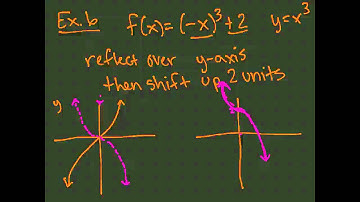 Ex. 6 f(x) = (-x)³ + 2 y = x³
reflect over y-axis
then shift up 2 units
y